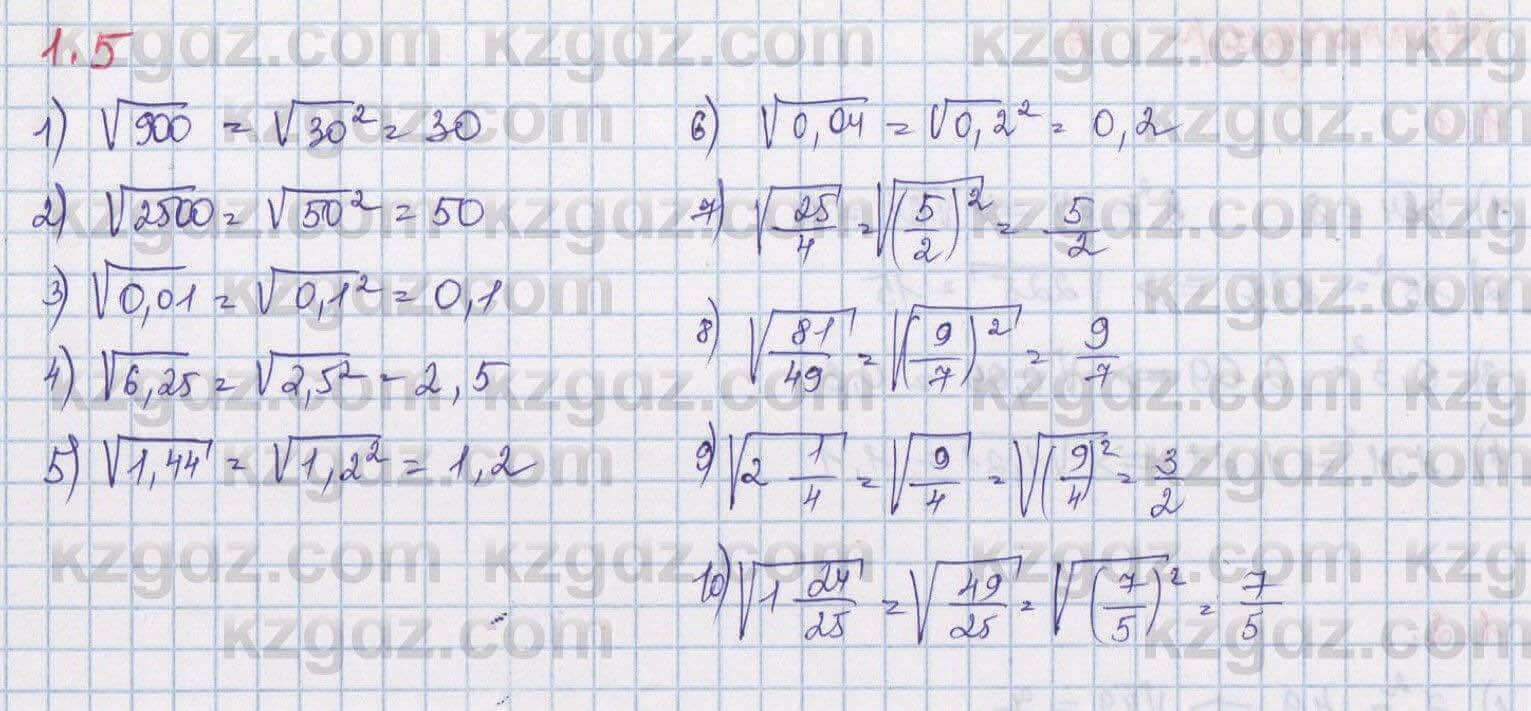 1.5
1) √900 = √30² = 30
2) √2500 = √50² = 50
3) √0,01 = √0,1² = 0,1
4) √6,25 = √2,5² = 2,5
5) √1,44 = √1,2² = 1,2
6) √0,04 = √0,2² = 0,2
7) √25/4 = √(5/2)² = 5/2
8) √81/49 = √(9/7)² = 9/7
9) √2 1/4 = √9/4 = √(9/4)² = 3/2
10) √1 24/25 = √49/25 = √(7/5)² = 7/5
kzgdz.com